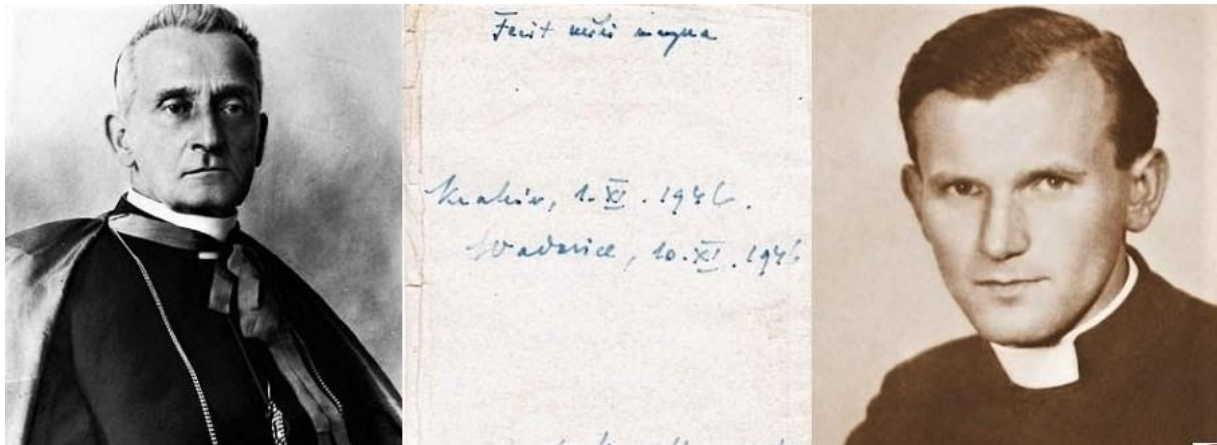 Fecit mihi magna
Kraków, 1. XI. 1946.
Wadowice, 10. XI. 1946